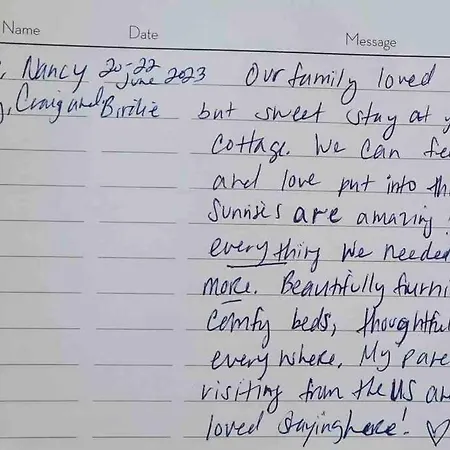 Name Date Message
Nancy 20-22 June 2023 Our family loved
Craig and Birdie but sweet stay at
Cottage. We can
and love put into
Sunrises are amazing
everything we needed
more. Beautifully
Comfy beds,
everywhere. My
visiting from the US
loved staying here! ♡